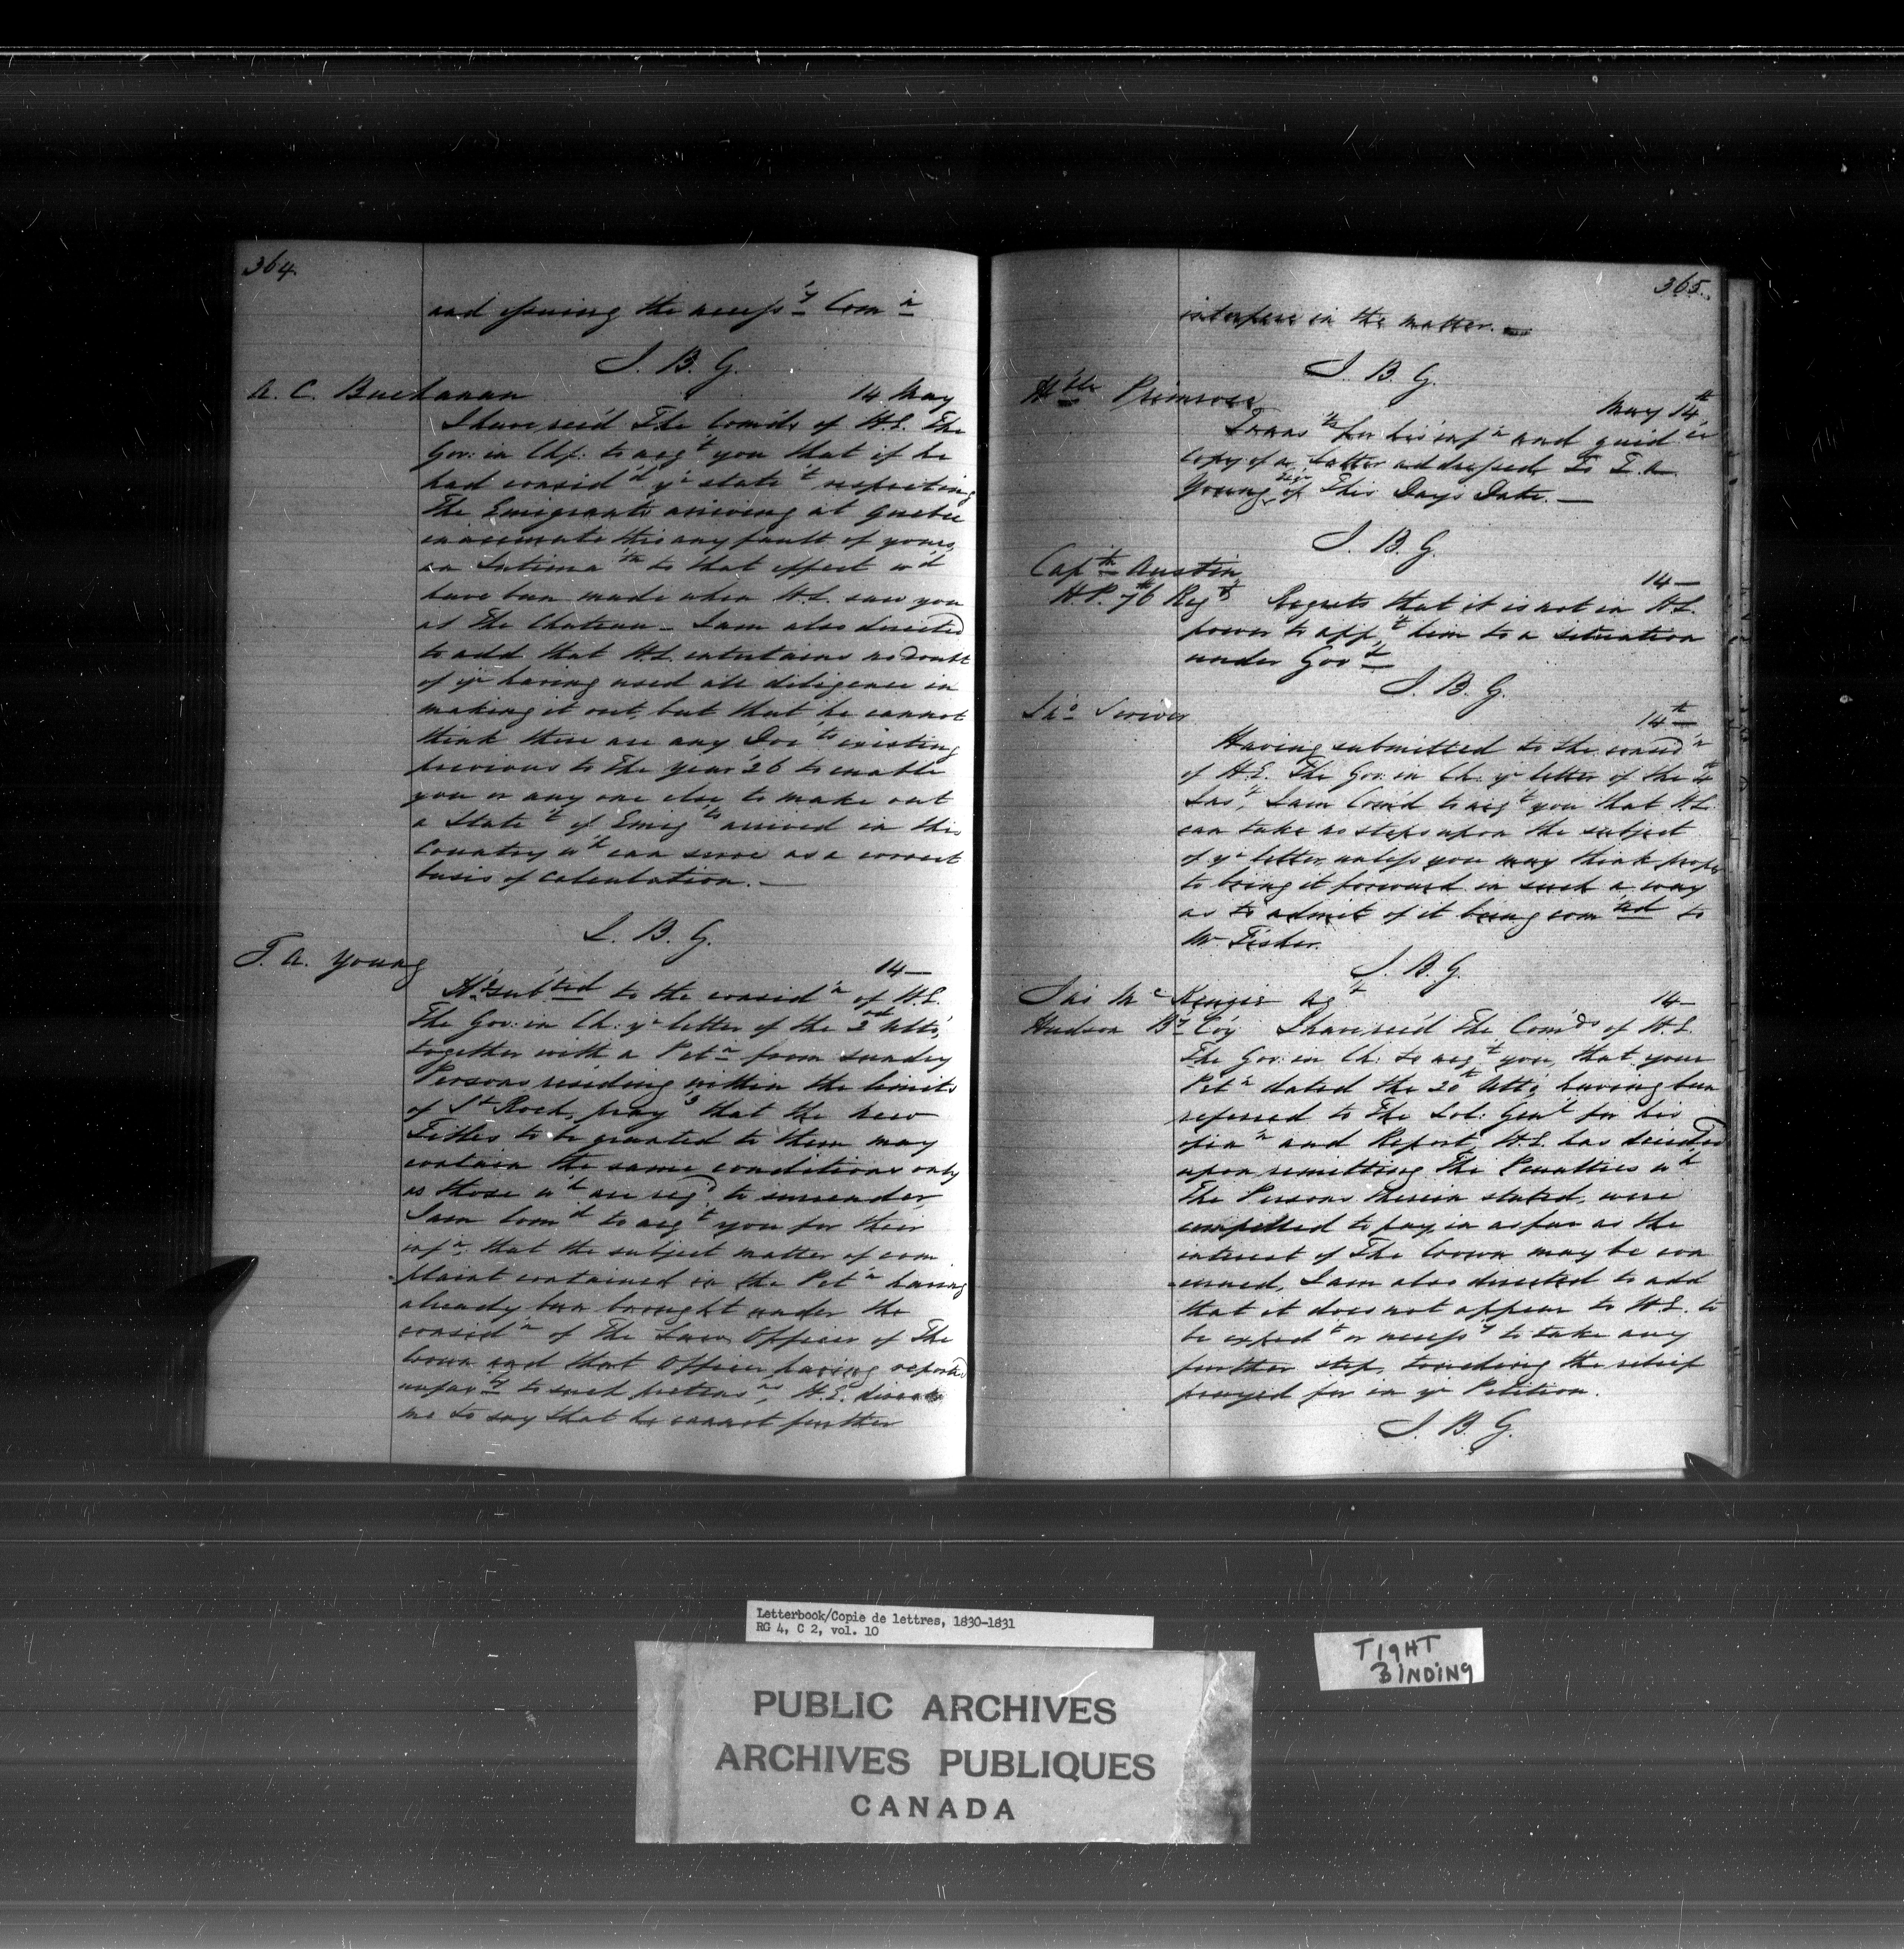 364.
and issuing the necessy Comn
J. B. G.
A. C. Buchanan 14 May
I have rec'd The Com'ds of H.E. The
Gov: in Chf: to acqt you that if he
had consid'd yr state't respecting
The Emigrants arriving at Quebec
inaccurate thro any fault of yours,
an Intima'tn to that effect w'd
have been made when H.E. saw you
at The Chateau - I am also directed
to add that H.E. entertains no doubt
of yr having used all diligence in
making it out, but that he cannot
think there are any Doc'ts existing
previous to The year '26 to enable
you or any one else to make out
a State't of Emig'ts arrived in this
Country wh can serve as a correct
basis of calculation. —
J. B. G.
T. A. Young 14 —
Hg sub'ted to the consid'n of H.E.
The Gov: in Ch: yr letter of the 3rd Ult'o,
together with a Petn from sundry
Persons residing within the limits
of St Roch, prayg that the new
Titles to be granted to them may
contain the same conditions only
as those wh are reqd to surrender,
I am Comd to acqt you for their
infn, that the subject matter of com
-plaint contained in the Pet'n having
already been brought under the
consid'n of The Law Officer of The
Crown and that Officer having reported
unfavy to such pretens'ns, H.E. directs
me to say that he cannot further
365.
interfere in the matter. —
J. B. G.
H'ble Primrose May 14th
Trans'ts for his inf'n and guid'ce
Copy of a Letter addressed To T. A.
Young Esqr of This Days Date. —
J. B. G.
Captn Austin 14 —
H.P. 76th Regt Regrets that it is not in H.E.
power to app't him to a situation
under Gov't
J. B. G.
Jno Scriver 14th
Having submitted to the consid'n
of H.E. The Gov: in Ch: yr letter of the 4th
Ins't, I am Com'd to acqt you that H.E.
can take no steps upon the subject
of yr letter, unless you may think proper
to bring it forward in such a way
as to admit of it being com'ted to
Mr Fisher.
J. B. G.
Jas McKenzie Agt 14 —
Hudson By Co'y I have rec'd The Com'ds of H.E.
The Gov: in Ch: to acqt you, that your
Pet'n dated the 20th Ult'o, having been
referred to The Sol: Gen'l for his
opin'n and Report, H.E. has decided
upon remitting The Penalties wh
The Persons therein stated, were
compelled to pay in as far as the
interest of The Crown may be con
-cerned, I am also directed to add
that it does not appear to H.E. to
be exped't or necess'y to take any
further step, touching the relief
prayed for in yr Petition.
J. B. G.
Letterbook/Copie de lettres, 1830-1831
RG 4, C 2, vol. 10
TIGHT
BINDING
PUBLIC ARCHIVES
ARCHIVES PUBLIQUES
CANADA